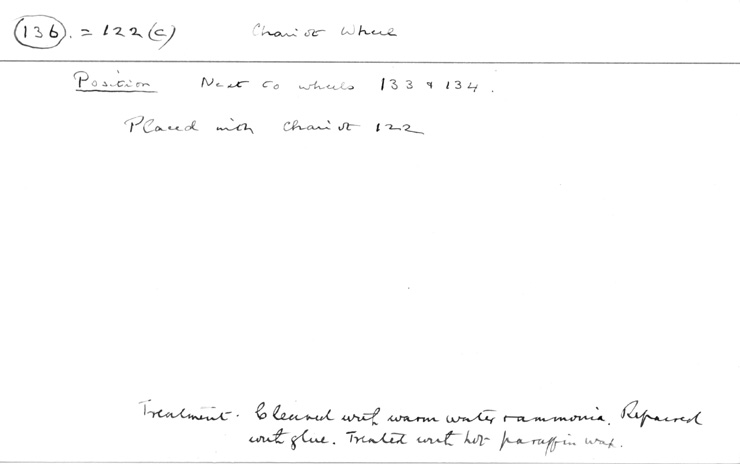 136. = 122 (c) Chariot Wheel
Position Next to wheels 133 & 134.
Placed with chariot 122
Treatment. Cleaned with warm water & ammonia. Repaired
with glue. Treated with hot paraffin wax.